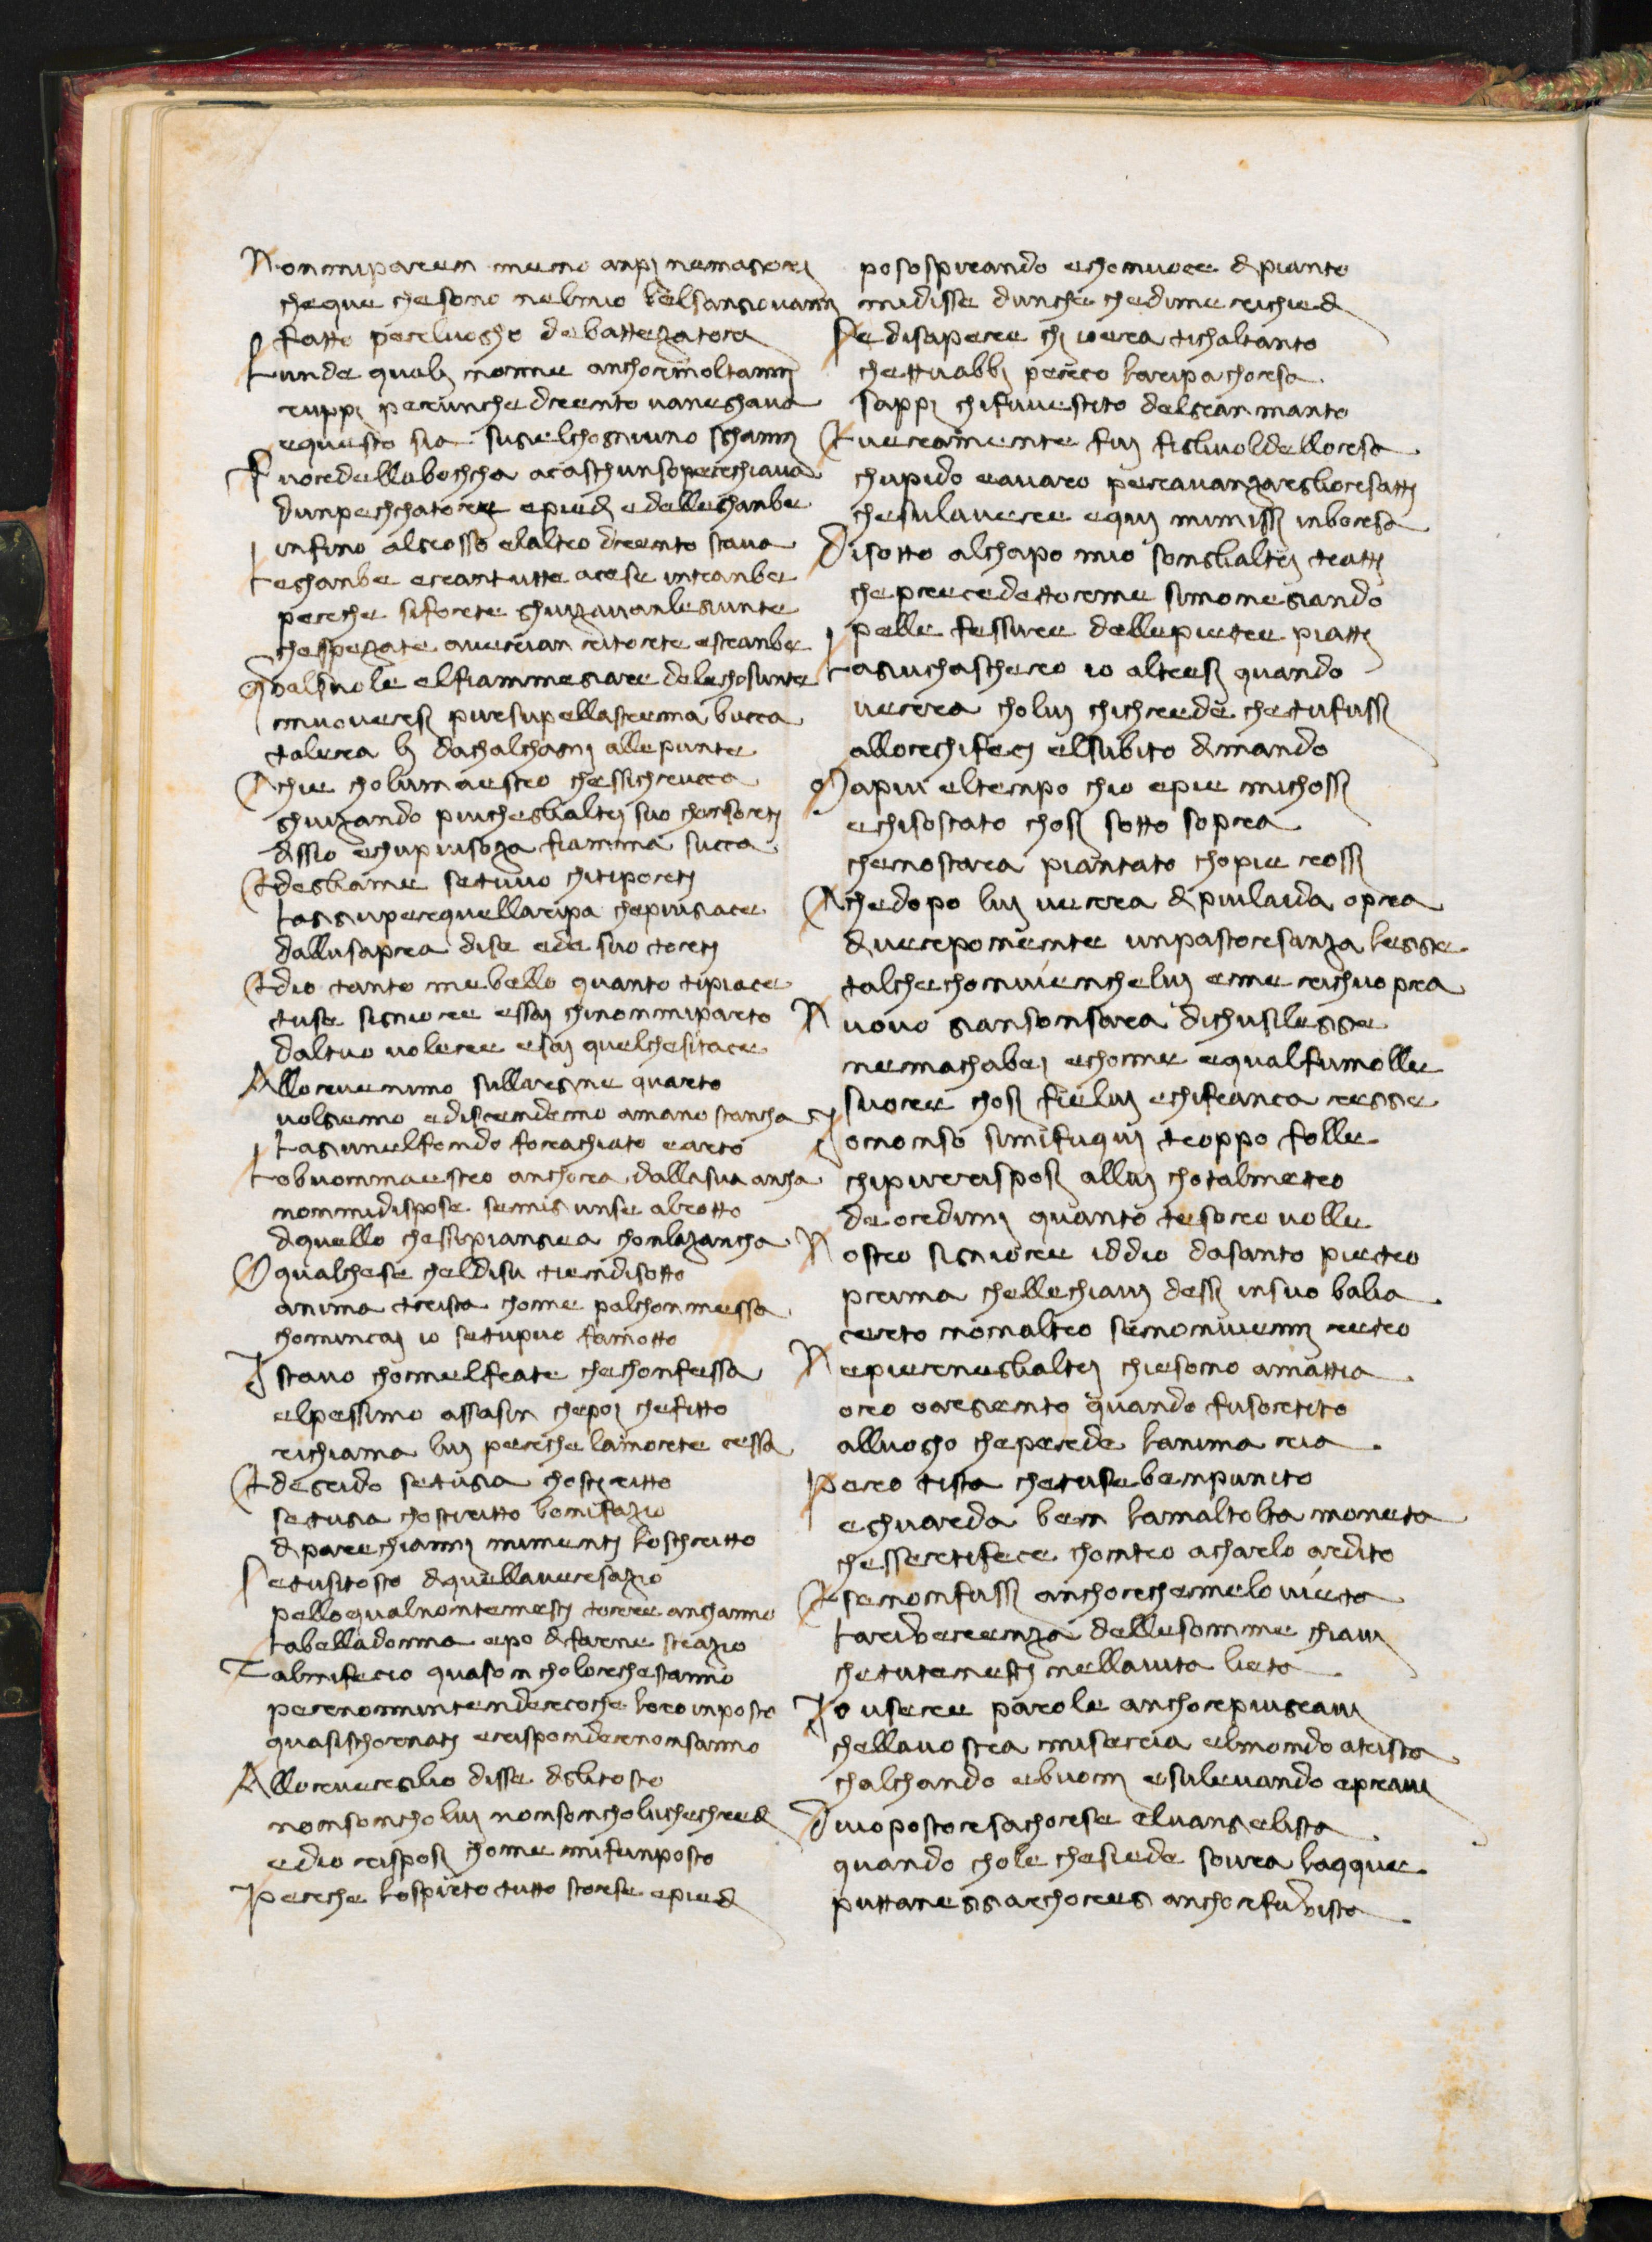 Nonmiparean meno anpi nemagiori
cheque chesono nelmio belsangiovanni
fatto perluogho debattezatori
Lunde quali nonne anchorimoltanni
ruppi perunche drento vaneghava
equesto sia sugielchogniuno sghanni
Fuoredellabochcha acaschunsoperchiava
dunpechchatore epiedi edelleghanbe
infino algrosso elaltro drento stava
Leghanbe erantutte acese intranbe
perche siforte ghuizavanlegiunte
chespezate averian ritorte estranbe
Qualsuole elfiammegiare delechosunte
muoversi puresupellastrema bucca
talera li dachalchagni allepunte
Achie choluimaestro chessichrucca
ghuizando piucheglialtri suo chonsorti
dissio echupiurosoza fiamma succa
Edegliame setuvuo chitiporti
laggiuperquellaripa chepiugiace
dallusapra dise ede suo torti
Edio tanto mebello quanto tipiace
tuse signiore essai chinonmiparto
daltuo volere esai quelchesitace
Allorvenimo sullargine quarto
volgiemo ediscendemo amano stancha
lagiunelfondo forachiato earto
Lobuonmaestro anchora dallasua ancha
nonmidispose semigiunse alrotto
diquello chessipiangiea chonlazancha
Oqualchese cheldisu tiendisotto
anima trista chome palchonmessa
chomincai io setupuo famotto
Istavo chomelfrate chechonfessa
elpessimo assasin chepoi chefitto
richiama lui perche lamorte cessa
Edegrido setugia chostiritto
setugia chostiritto bonifazio
diparechianni mimenti loschritto
Setusitosto diquellaversazio
pelloqualnontemesti torre anghanno
labelladonna epo difarne strazio
Talmifecio quason cholorchestanno
pernonnintenderecoche loroinposto
quasischornati erispondernonsanno
Allorvergilio disse diglitosto
nonsoncholui nonsoncholuichechredi
edio risposi chome mifunposto
Perche lospirto tutto storse epiedi
posospirando echonvoce dipianto
midisse dunche chedime richiedi
Sedisapere chi iosia tichaltanto
chettuabbi perco laripachorsa
sappi chifuivestito delgran manto
Everamente fui figliuoldellorsa
chupido eavaro peravanzargliorsatti
chesulavere equi mimissi inborsa
Disotto alchapo mio songlialtri tratti
cheprecedettorme simonegiando
pelle fessure dellepietre piatti
Lagiuchaschero io altresi quando
verra cholui chichrede chetufussi
allorchifeci elsubito dimando
Mapiu eltempo chio epie michossi
echisostato chosi sotto sopra
chenostara piantato chopie rossi
Chedopo lui verra dipiulaida opra
diverponente unpastorsanza legge
talchechonvienchelui eme richuopra
Nuovo giansonsara dichusilegge
nemachabei echome equalfumolle
suore chosi fielui echifranca regge
Iononso simifuqui troppo folle
chipurerisposi allui chotalmetro
deordimi quanto tesoro volle
Nostro signiore iddio dasanto pietro
prima chellechiavi dessi insuo balia
certo nonaltro senonvienni retro
Nepierneglialtri chiesono amattia
oro oargiento quando fusortito
alluogho cheperde lanima ria
Pero tista chetuse benpunito
eghuarda ben lamaltolta moneta
chessertifece chontro acharlo ardito
Esenonfussi anchorchemelovieta
lareverenza dellesomme chiavi
chetutenesti nellavita lieta
Io userei parole anchorpiugravi
chellavostra miseria elmondo atrista
chalchando ebuoni esulevando epravi
Divoipastorsachorse elvangelista
quando chole chesiede sovra laqque
puttanegiarchoregi anchorfuvista